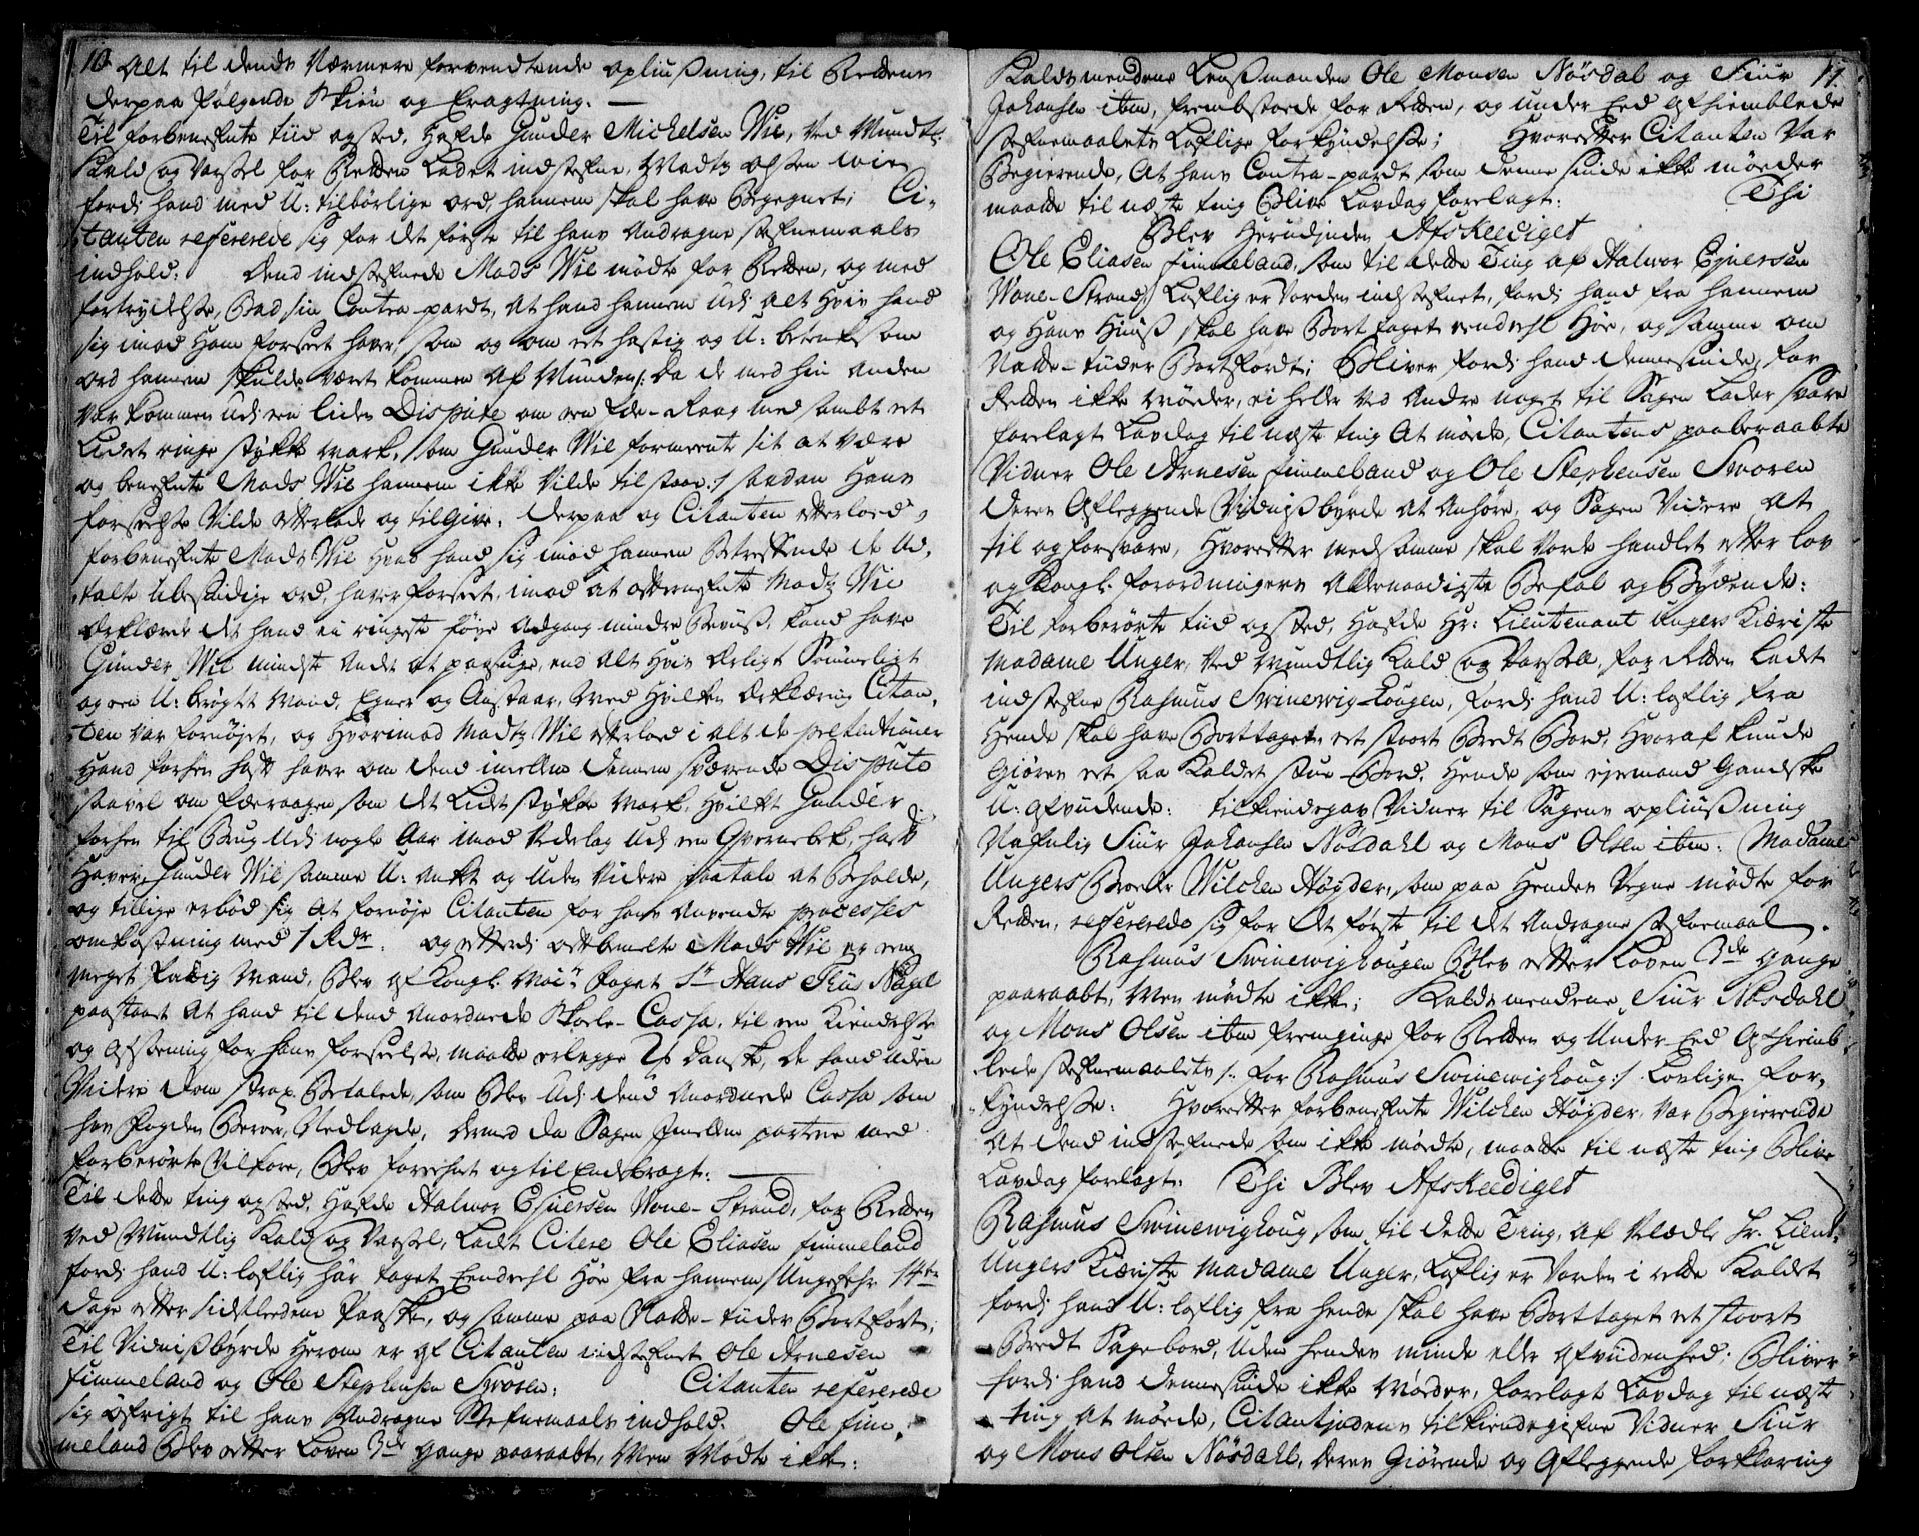 10. Alt til dends Nærmere forventende opliusning, til Rettens
derpaa følgende Skiøn og Eragtning.
Til forbenefnte tiid og sted, hafde Gunder Michelsen Wie, ved Mundtl:
Kald og Varsel for Retten Ladet indstefne, Madtz Olsen Wie
fordi hand med U: tilbørlige ord, hannem skal have Begegnet; Ci-
tanten refererede sig for det første til hans Andragne stefnemaals
indhold: Dend indstefnede Mads Wie mødte for Retten, og med
fortrydelse, Bad sin Contra-part, at hand hannem Udi alt hvis hand
sig imod Ham forseet haver, som og om et hastig og U: betenksom
ord hannem skulde været kommen af Munden /: da de med hin anden
var kommen udi een liden Dispute om een Ede-Raag med sambt et
Lidet ringe stykke Mark, som Gunder Wie formeente sit at være
og benefnte Mads Wie hannem ikke vilde tilstaae :/ saadan hans
forseelse vilde efterlade og tilgive. Derpaa og Citanten efterloed
forbenefnte Mads Wie hvad hand sig imod hannem Betreffende de Ud-
talte ubesindige ord, haver forseet, imod at ofternefnte Madtz Wie
Erklærede det hand ei ringeste føye Adgang mindre Beviis, kand have
Gunder Wie mindste Andet at paasige, end alt hvis Ærligt Sømmeligt
og een U: brøgtt Mand, Egner og Anstaar, Med hvilken Erklæring Citan-
ten var fornøjet, og hvorimod Madtz Wie efterloed i alt de prætentioner
hand forhen hafft haver om dend imellem dennem svævende Dispute
saavel om Ederaagen som det Lidet stykke Mark, hvilket Gunder
forhen til Brug udi nogle Aar imod Vederlag Udi een Qvernebek, hafft
haver, Gunder Wie samme U: anket og uden videre paatale at Beholde,
og tillige erbød sig at fornøje Citanten for hans anvendte processes
omkostning med 1 Rdr. og efterdi oftbemelte Mads Wie er een
meget fattig Mand, Blev af Kongl: Mai: Foget Sr Hans Thiis Nagel
paastaaet at hand til dend anordnede Skole-Cassa, til een Kiendelse
og Afsoning for hans forseelse, maatte erlegge 2 ß danske, de hand uden
Videre Dom strax Betalede, som Blev udi dend Anordnede Cassa som
hos Fogden Beroer, Nedlagde, dermed da Sagen Imellem parterne med
forberørte Vilkore, Blev foreenet og til Endebragt:
Til dette ting og sted, hafde Halvor Ejuersen Wone-Strand, for Retten
Ved Mundtlig Kald og Varsel, Ladet Citere Ole Eliasen Fimmeland
fordi hand U: loflig har taget Eendeehl Høe fra hannem, Ungefehr 14ten
dage efter sidstledene Paaske, og samme paa Natte-tider Bortført;
Til Vidnisbyrde herom er af Citanten indstefnet Ole Arnesen
Fimmeland og Ole Stephensen Sworen: Citanten refererede
sig øfrigt til hans Andragne Stefnemaals indhold. Ole Fim-
meland Blev efter Loven 3de gange paaraabt, Men Mødte ikke:
11.
Kaldsmendene Lensmanden Ole Monsen Nøsdal og Siur
Johansen ibm, frembstoede for Retten, og under Eed afhiemblede
stefnemaalets Loflige forkyndelse; Hvorefter Citanten Var
Begierende, At hans Contra-part som denne sinde ikke mødte
maatte til næste ting Blive Lavdag forelagt: Thi
Blev herudinden Afskeediget
Ole Eliasen Fimmeland, som til dette Ting af Halvor Ejuersen
Wone-Strand, Loflig er Vorden indstefnet, fordi hand fra hannem
og hans huus skal have Bort taget eendeehl Høe, og samme om
Natte-tider Bortført; Bliver fordi hand denne sinde, for
Retten ikke Møder, ei heller ved Andre noget til Sagen Lader svare
forelagt Lavdag til næste ting At møde, Citantens paaberaabte
Vidner Ole Arnesen Fimmeland og Ole Stephensen Sworen
deres Afleggende Vidnisbyrde at Anhøre, og Sagen Videre at
til og forsvare, hvorefter med samme skal Vorde handlet efter Lov
og Kongl: forordningers Allernaadigste Befal og Bydende:
Til forberørte tiid og sted, hafde Hr: Lieutenant Ungers Kiæriste
Madame Unger, Ved Mundtlig Kald og Varsel, for Retten Ladet
indstefne Rasmus Swinewig-hougen, fordi hand U: loflig fra
hende skal have Borttaget et stoort Bredt Bord, hvoraf kunde
Giøres et saa kaldet stue-Bord, hende som ejermand gandske
U: afvidende: tilkiendegav Vidner til Sagens opliusning
Nafnlig Siur Johansen Nøsdahl og Mons Olsen ibm: Madame
Ungers Broeder Wilchen Høyder, som paa hendes Vegne mødte for
Retten, refererede sig for det første til det Andragne stefnemaal.
Rasmus Swinewighougen Blev efter Loven 3de gange
paaraabt, Men mødte ikke; Kaldsmendene Siur Nøsdahl
og Mons Olsen ibm fremginge for Retten og Under Eed Afhiemb-
lede stefnemaalets /: for Rasmus Swinewighoug :/ Lovlige for-
kyndelse: Hvorefter forbenefnte Wilchen Høyder, Var Begierende
At dend indstefnede som ikke mødte, maatte til næste ting Blive
Lavdag forelagt: Thi Blev Afskeediget
Rasmus Swinewighoug, som til dette Ting, af Velædle Hr. Lieut:
Ungers Kiæriste Madame Unger, Loflig er Vorden i rette Kaldet
fordi hand U: loflig fra hende skal have Borttaget et stoort
Bredt Sagebord, Uden hendes minde eller afviidenhed; Bliver
fordi hand denne sinde ikke Møder, forelagt Lavdag til næste
ting At møde, Citantindens tilkiendegifne Vidner Siur
og Mons Olsen Nøsdahl, deres Giørende og Afleggende forklaring